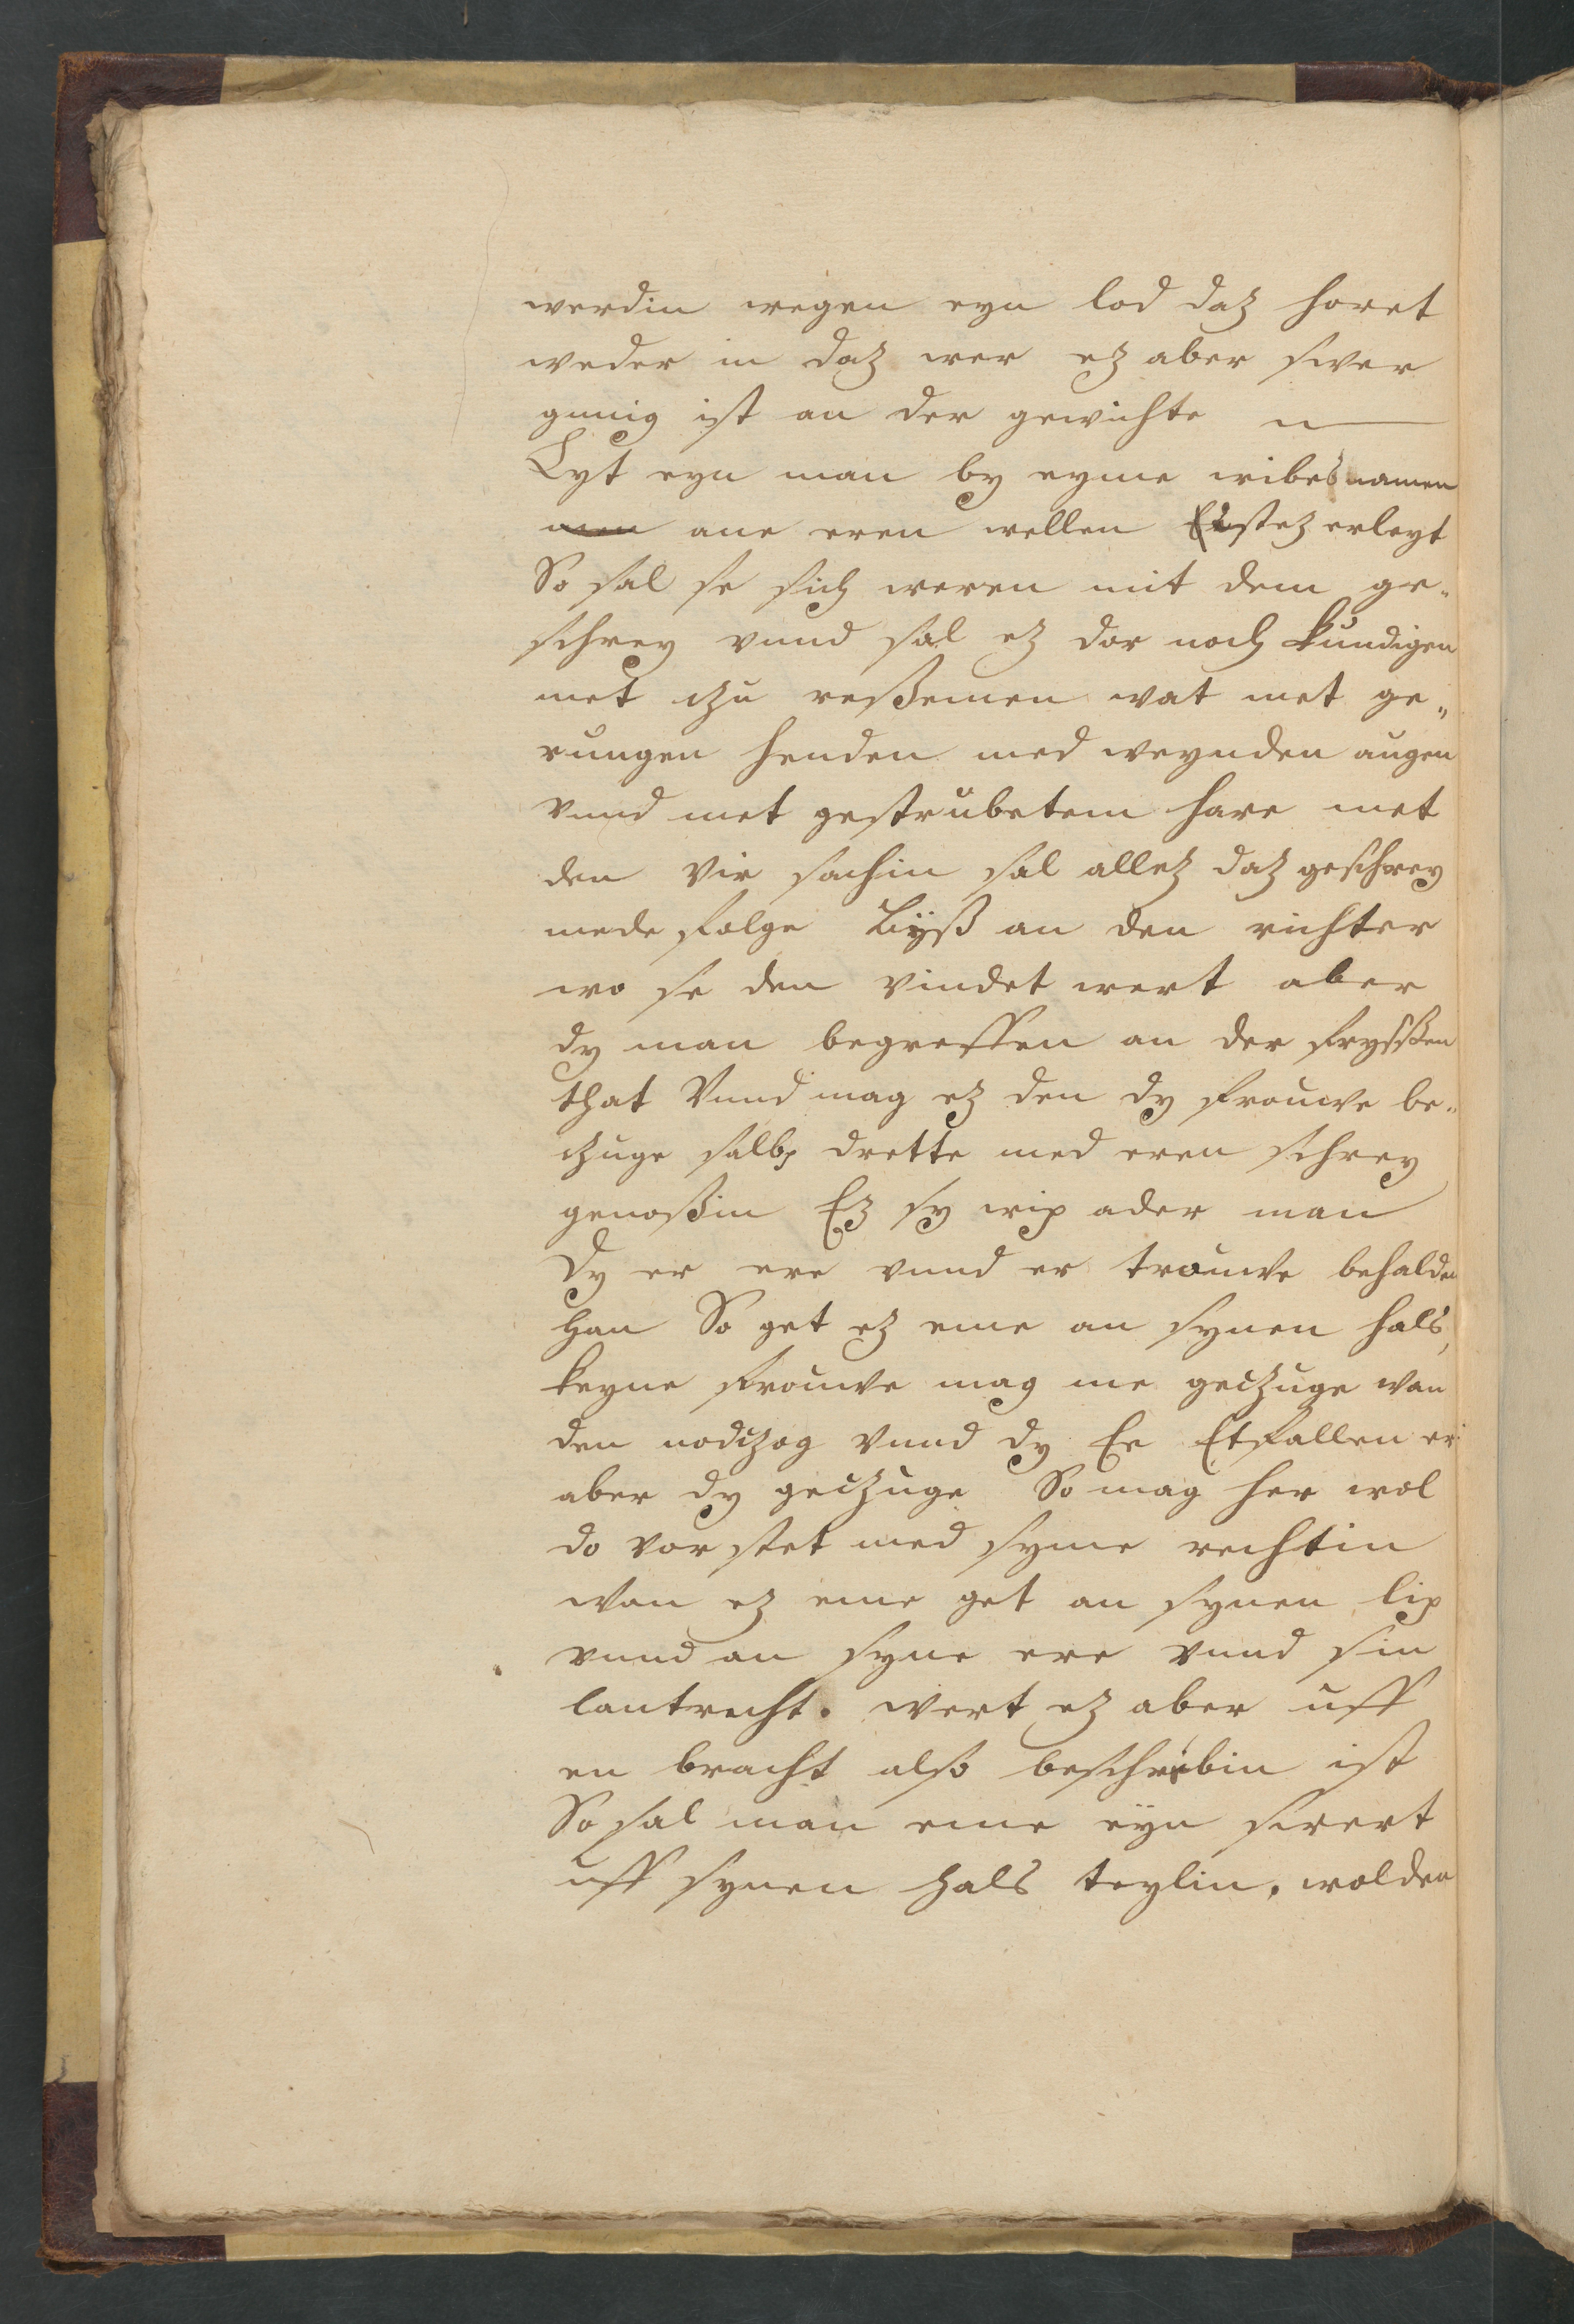 werdin wegen eyn lod daz horet
weder in daz wer ez aber swer
gunig ist an der gewichte n
Lyt eyn man by eyme wibes namen
ane eren wellen erleyt
So sal se sich weren mit dem ge„
schrey vnnd sal ez dor noch kundigen
met czu reßemen wat met ge„
rungen henden med weynden augen
vnnd met gestrubetem hare met
den vir sachin sal allez daz geschrey
mede folge byß an den richter
wo se den vindet wert aber
dy man begreffen an der fryßßen
that Vnnd mag ez den dy frouwe be„
czuge salbp drette med eren schrey
genoßin Ez sy wip ader man
Dy er ere vnnd er trouwe behalden
han So get ez eme an synen hals,
keyne frouwe mag me geczuge wan
den nodczog Vnnd dy Ee Etfallen er
aber dy geczuge So mag her wol
do vor stet med syme rechtin
wan ez eme get an synen lip
vnnd an syne ere vnnd sin
lantrecht. wert ez aber uff
en bracht also beschribin ist
So sal man eme eyn swert
uff synen hals teylin, wolden